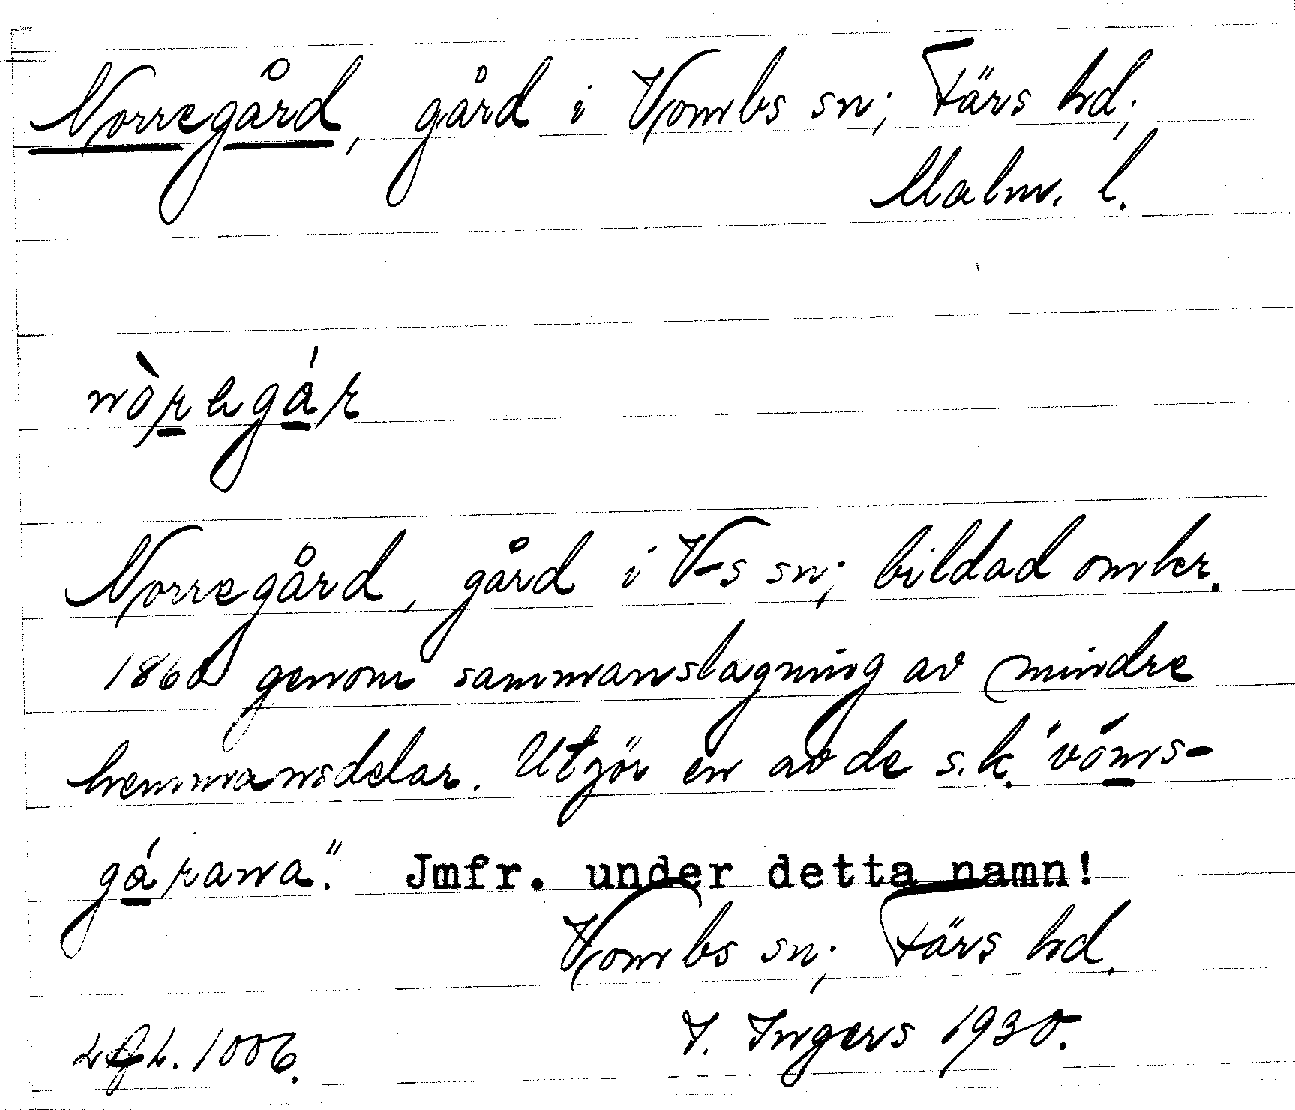 Norregård, gård i Vombs sn; Färs hd;
Malm. l.
nòregár
Norregård, gård i V-s sn; bildad omkr.
1860 genom sammanslagning av mindre
hemmansdelar. Utgör en av de s.k. "vóms-
gárana". Jmfr. under detta namn!
Vombs sn; Färs hd.
I. Ingers 1930.
1006.